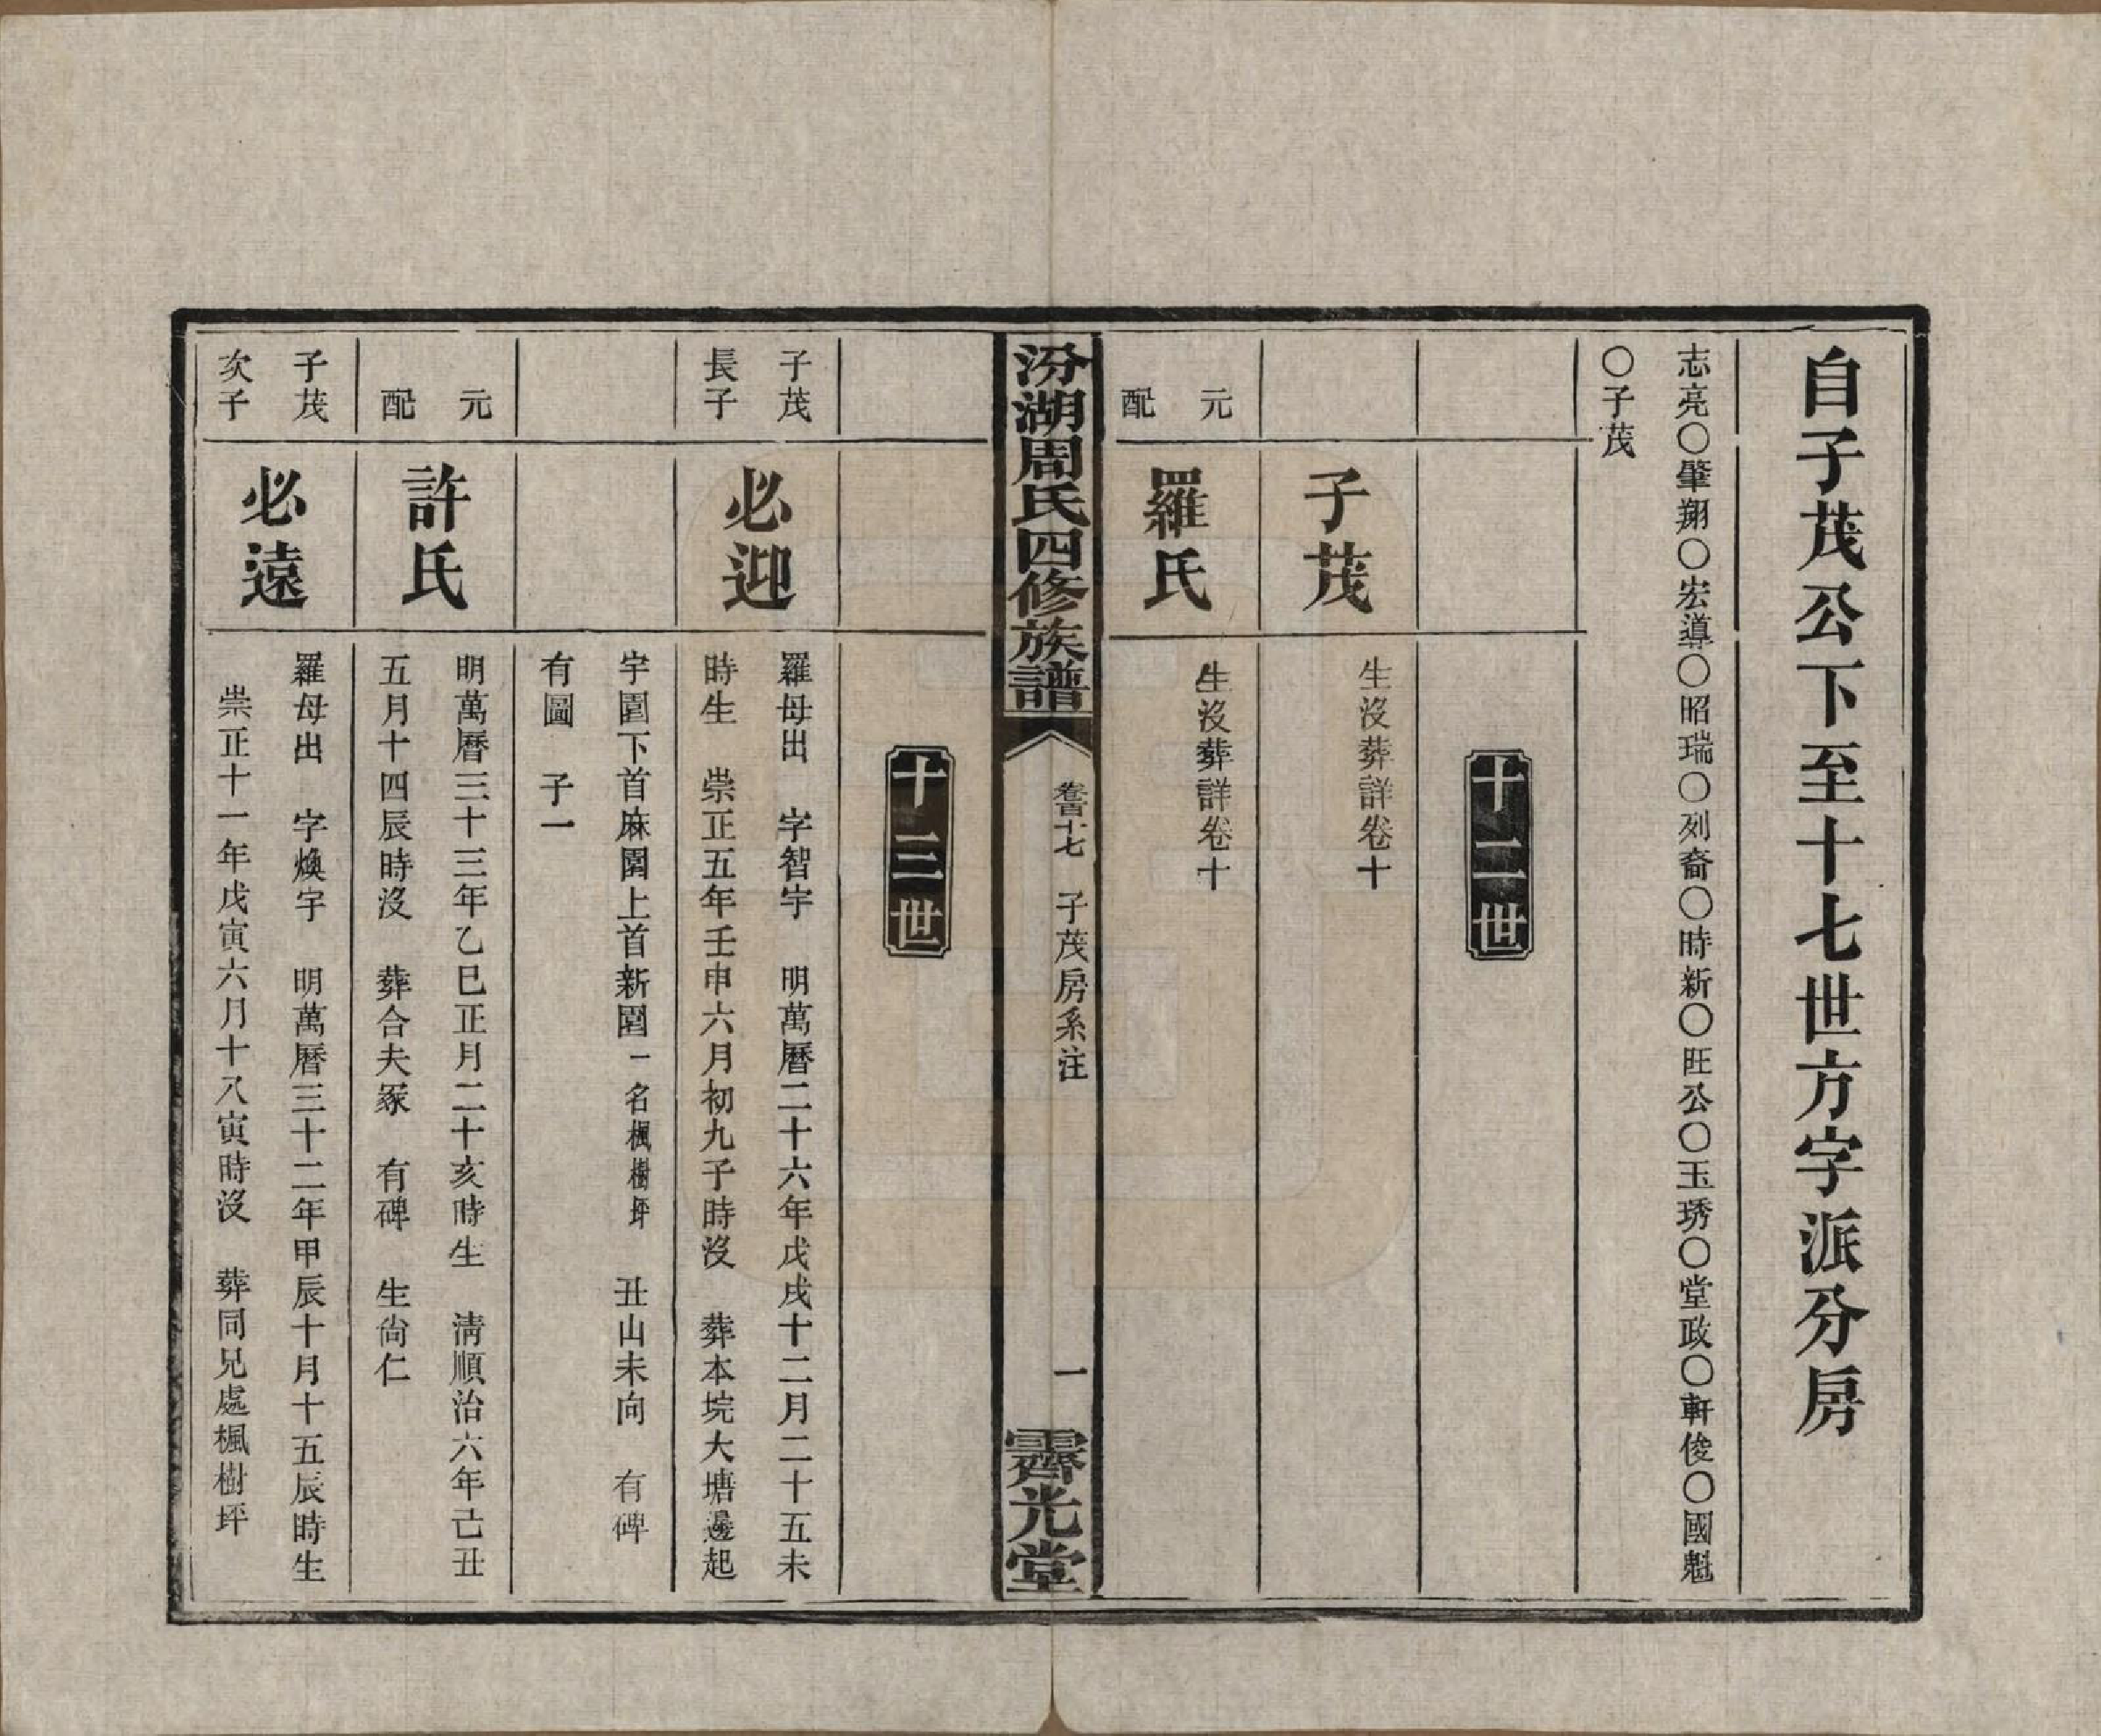 自子茂公下至十七世方字派分房
志亮〇肇翔〇宏導〇昭瑞〇列裔〇時新〇旺公〇玉琇〇堂政〇軒俊〇國魁
〇子茂
十二世
子茂
生沒葬詳卷十
元配
羅氏
生沒葬詳卷十
汾湖周氏四修族譜
卷百十七 子茂房系注
一
霽光堂
十三世
子茂
長子
必迎
羅母出 字智宇 明萬曆二十六年戊戌十二月二十五未
時生 崇正五年壬申六月初九子時沒 葬本垸大塘邊起
宇園下首麻園上首新園一名楓樹坪 丑山未向 有碑
有圖 子一
元配
許氏
明萬曆三十三年乙巳正月二十亥時生 清順治六年己丑
五月十四辰時沒 葬合夫冢 有碑 生尙仁
子茂
次子
必遠
羅母出 字煥宇 明萬曆三十二年甲辰十月十五辰時生
崇正十一年戊寅六月十八寅時沒 葬同兄處楓樹坪